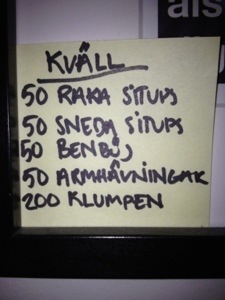 als
KVÄLL
50 RAKA SITUPS
50 SNEDA SITUPS
50 BENBÖJ
50 ARMHÄVNINGAR
200 KLUMPEN